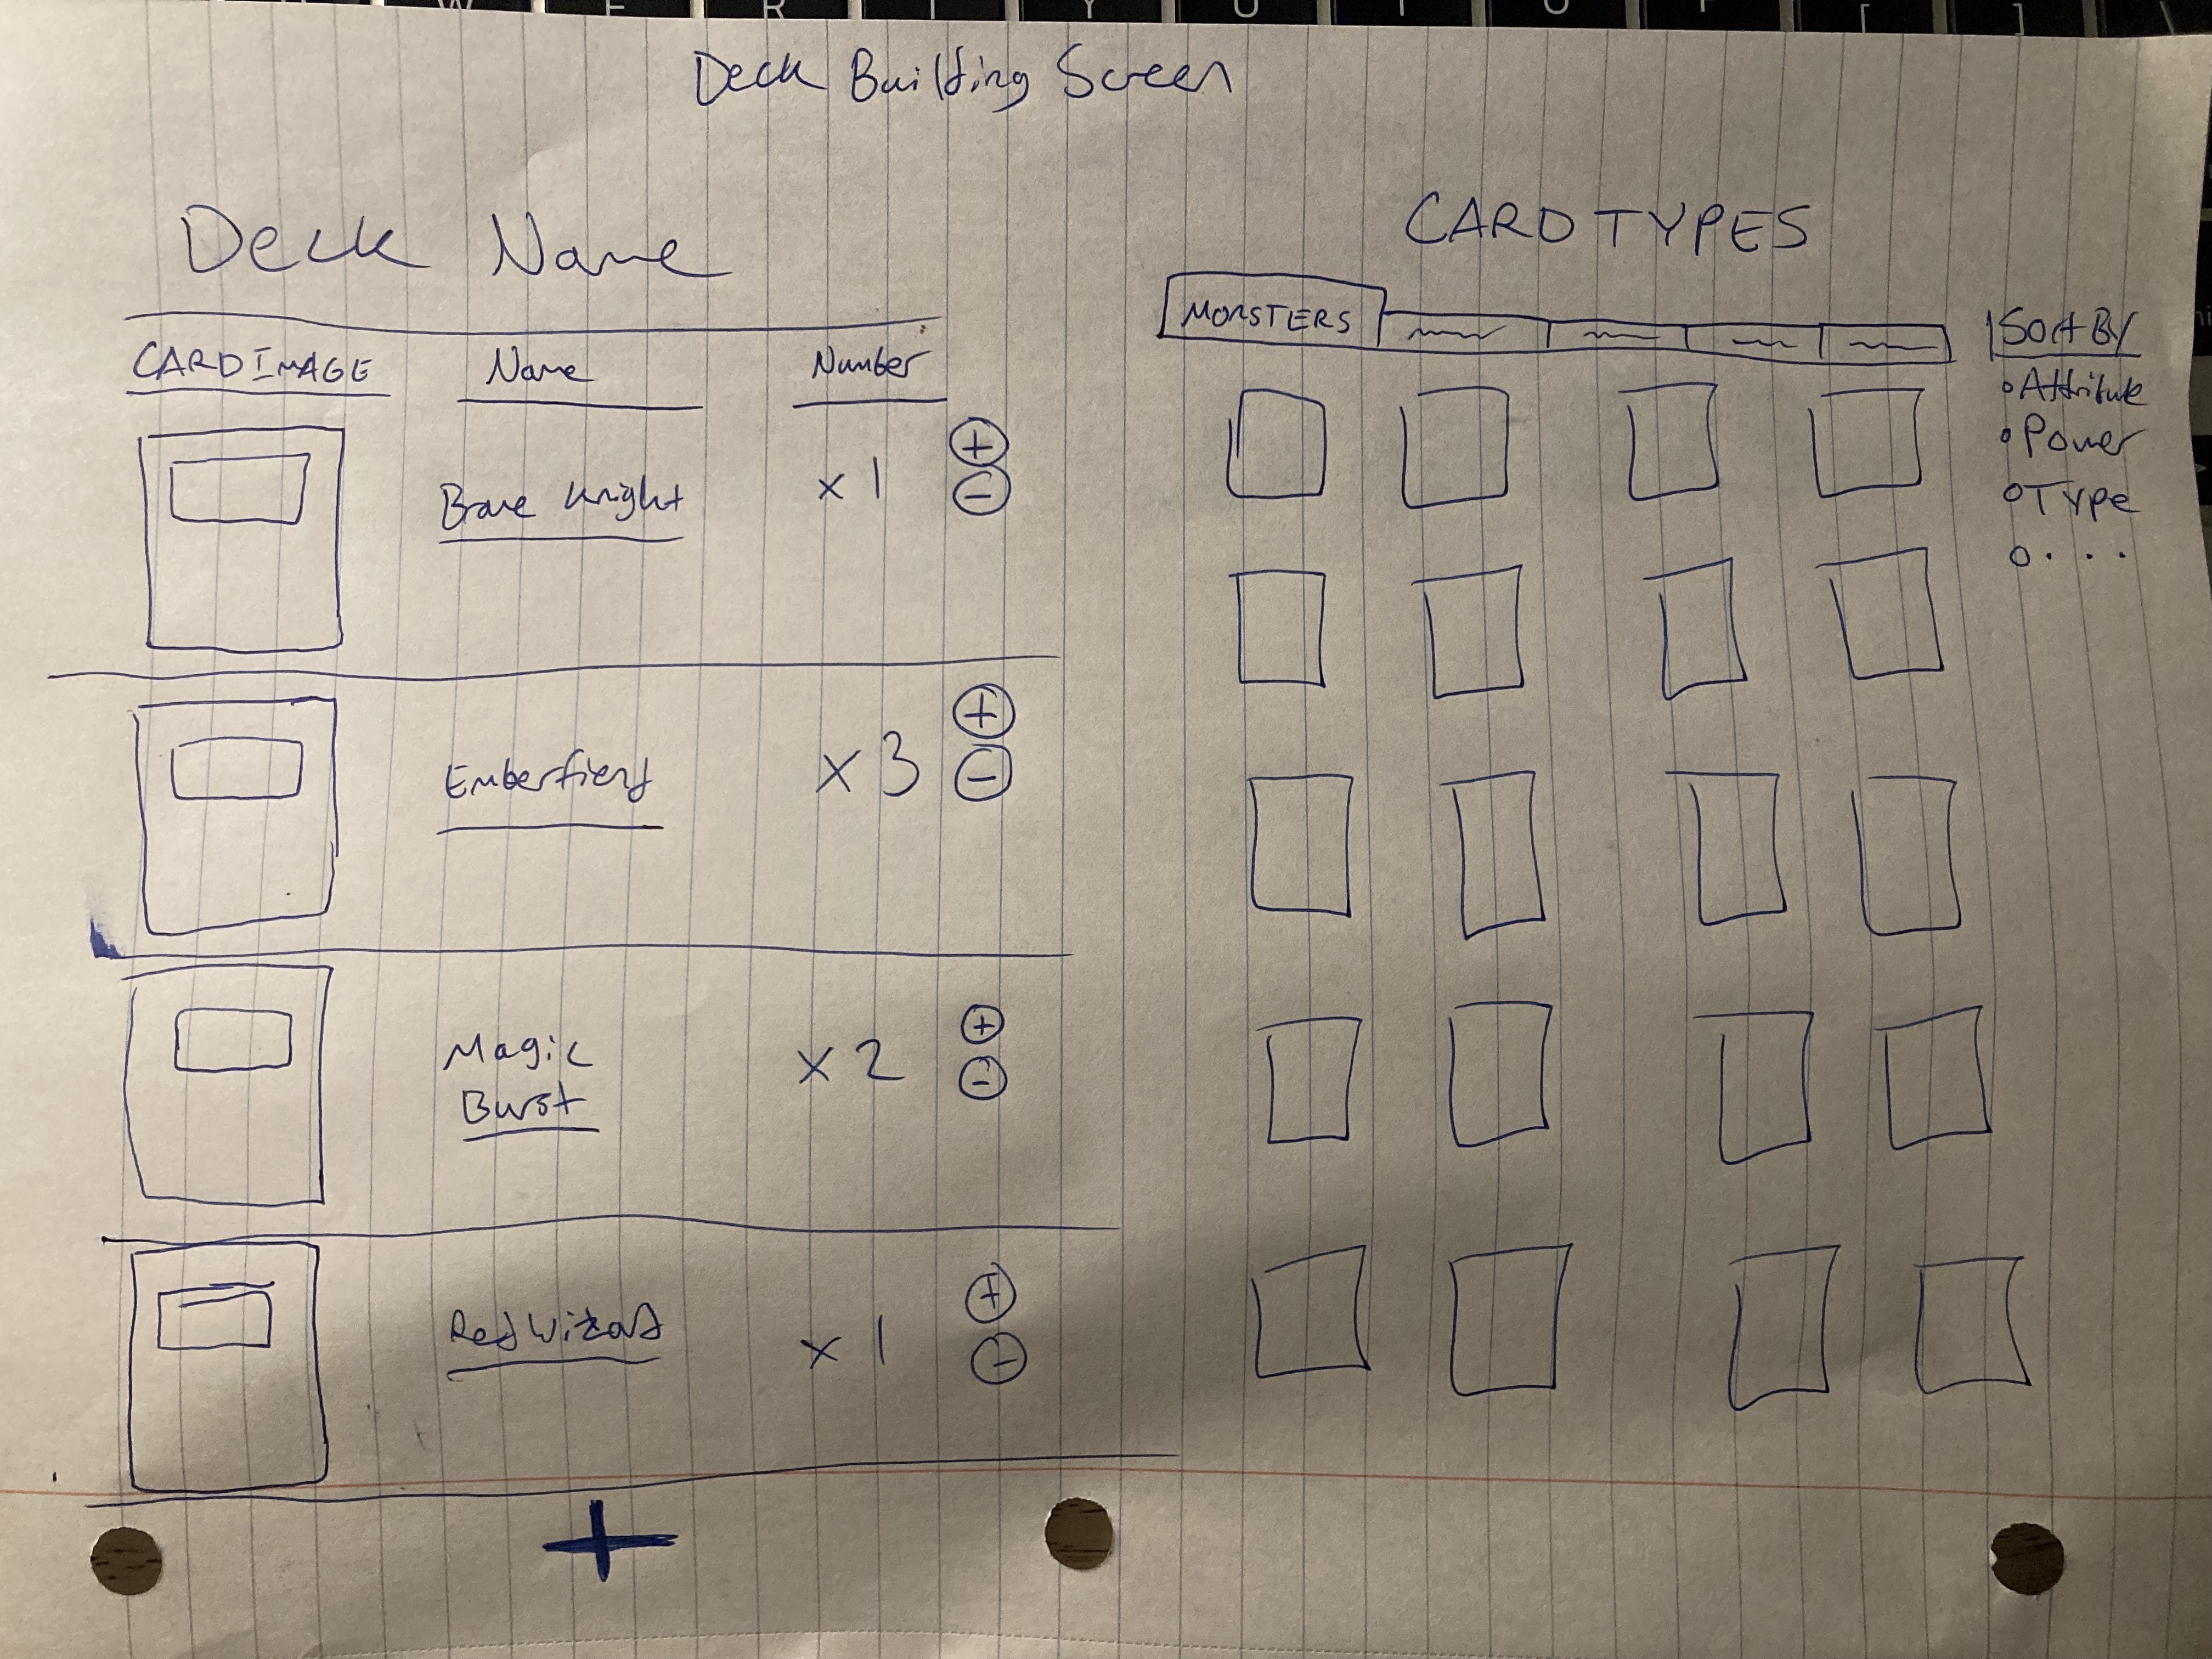 W E R T Y U I O P [ ] \
Deck Building Screen
Deck Name
CARD IMAGE Name Number
Brave Knight x 1 + −
Emberfiend x 3 + −
Magic
Burst x 2 + −
Red Wizard x 1 + −
+
CARD TYPES
MONSTERS
Sort By
Attribute
Power
Type
. . .